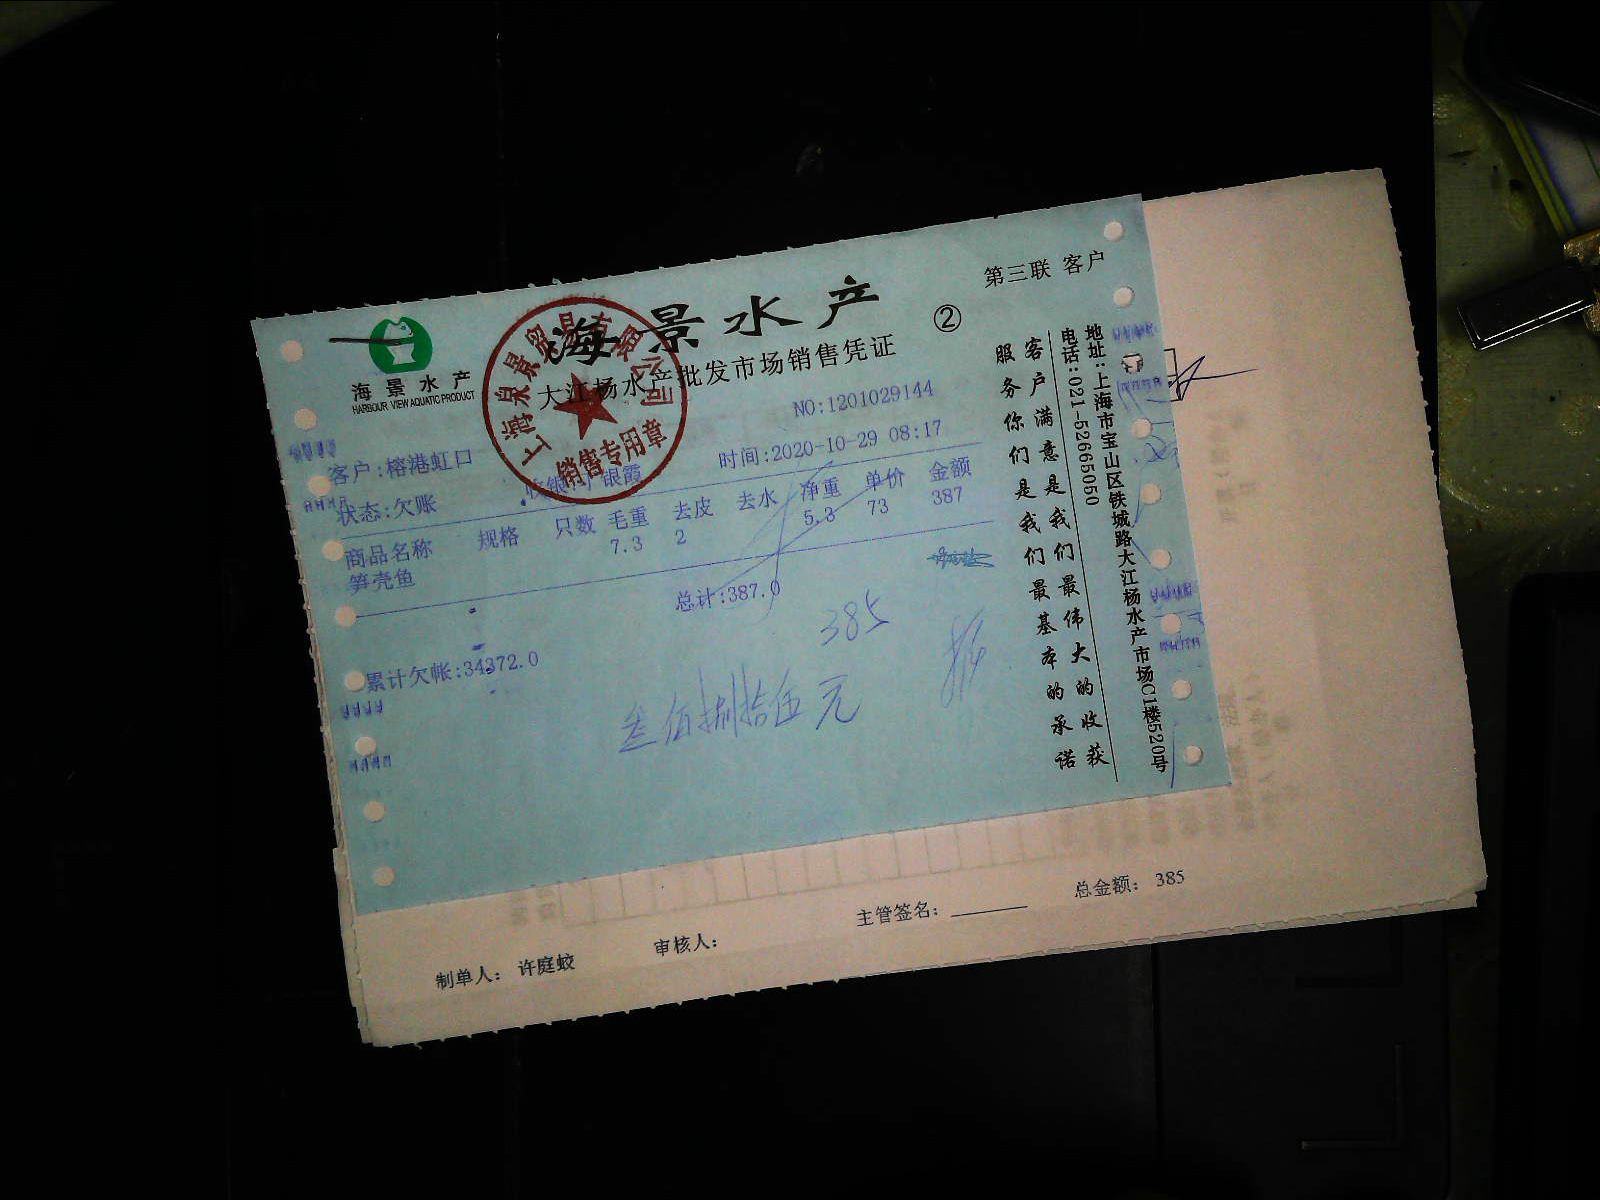 第三联 客户
海景水产
②
海景水产
HARBOUR VIEW AQUATIC PRODUCT
大江杨水产批发市场销售凭证
上海泉景贸易有限公司
销售专用章
NO:1201029144
客户:榕港虹口
时间:2020-10-29 08:17
状态:欠账
银霞
商品名称 规格 只数 毛重 去皮 去水 净重 单价 金额
笋壳鱼 7.3 2 5.3 73 387
总计:387.0
385
累计欠帐:34372.0
叁佰捌拾伍元
客户满意是我们最伟大的收获
服务你们是我们最基本的承诺
地址:上海市宝山区铁城路大江杨水产市场C1楼520号
电话:021-52665050
制单人: 许庭蛟
审核人:
主管签名:
总金额: 385